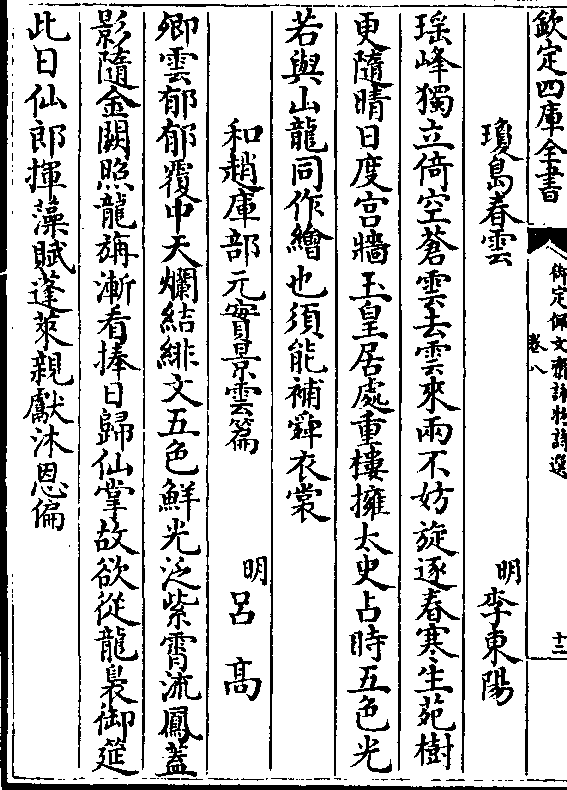 欽定四庫全書
御定佩文齋詠物詩選
卷八
十三
瓊島春雲
明李東陽
瑶峰獨立倚空蒼雲去雲來兩不妨旋逐春寒生苑樹
更隨晴日度宫牆玉皇居處重樓擁太史占時五色光
若與山龍同作繪也須能補舜衣裳
和趙庫部元實景雲篇
明吕高
卿雲郁郁覆中天爛結緋文五色鮮光泛紫霄流鳳蓋
影隨金闕照龍旃漸看捧日歸仙掌故欲從龍裊御筵
此日仙郎揮藻賦蓬萊親獻沐恩偏